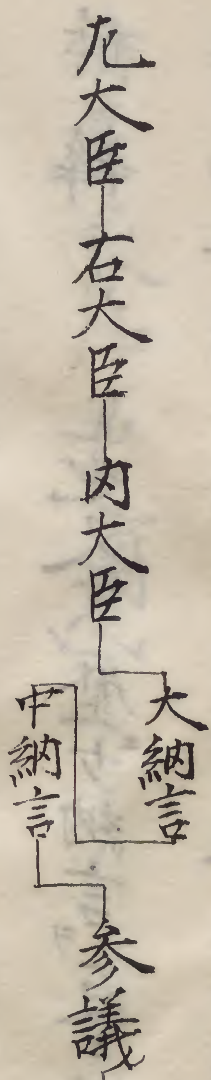 左大臣
右大臣
内大臣
大納言
中納言
参議